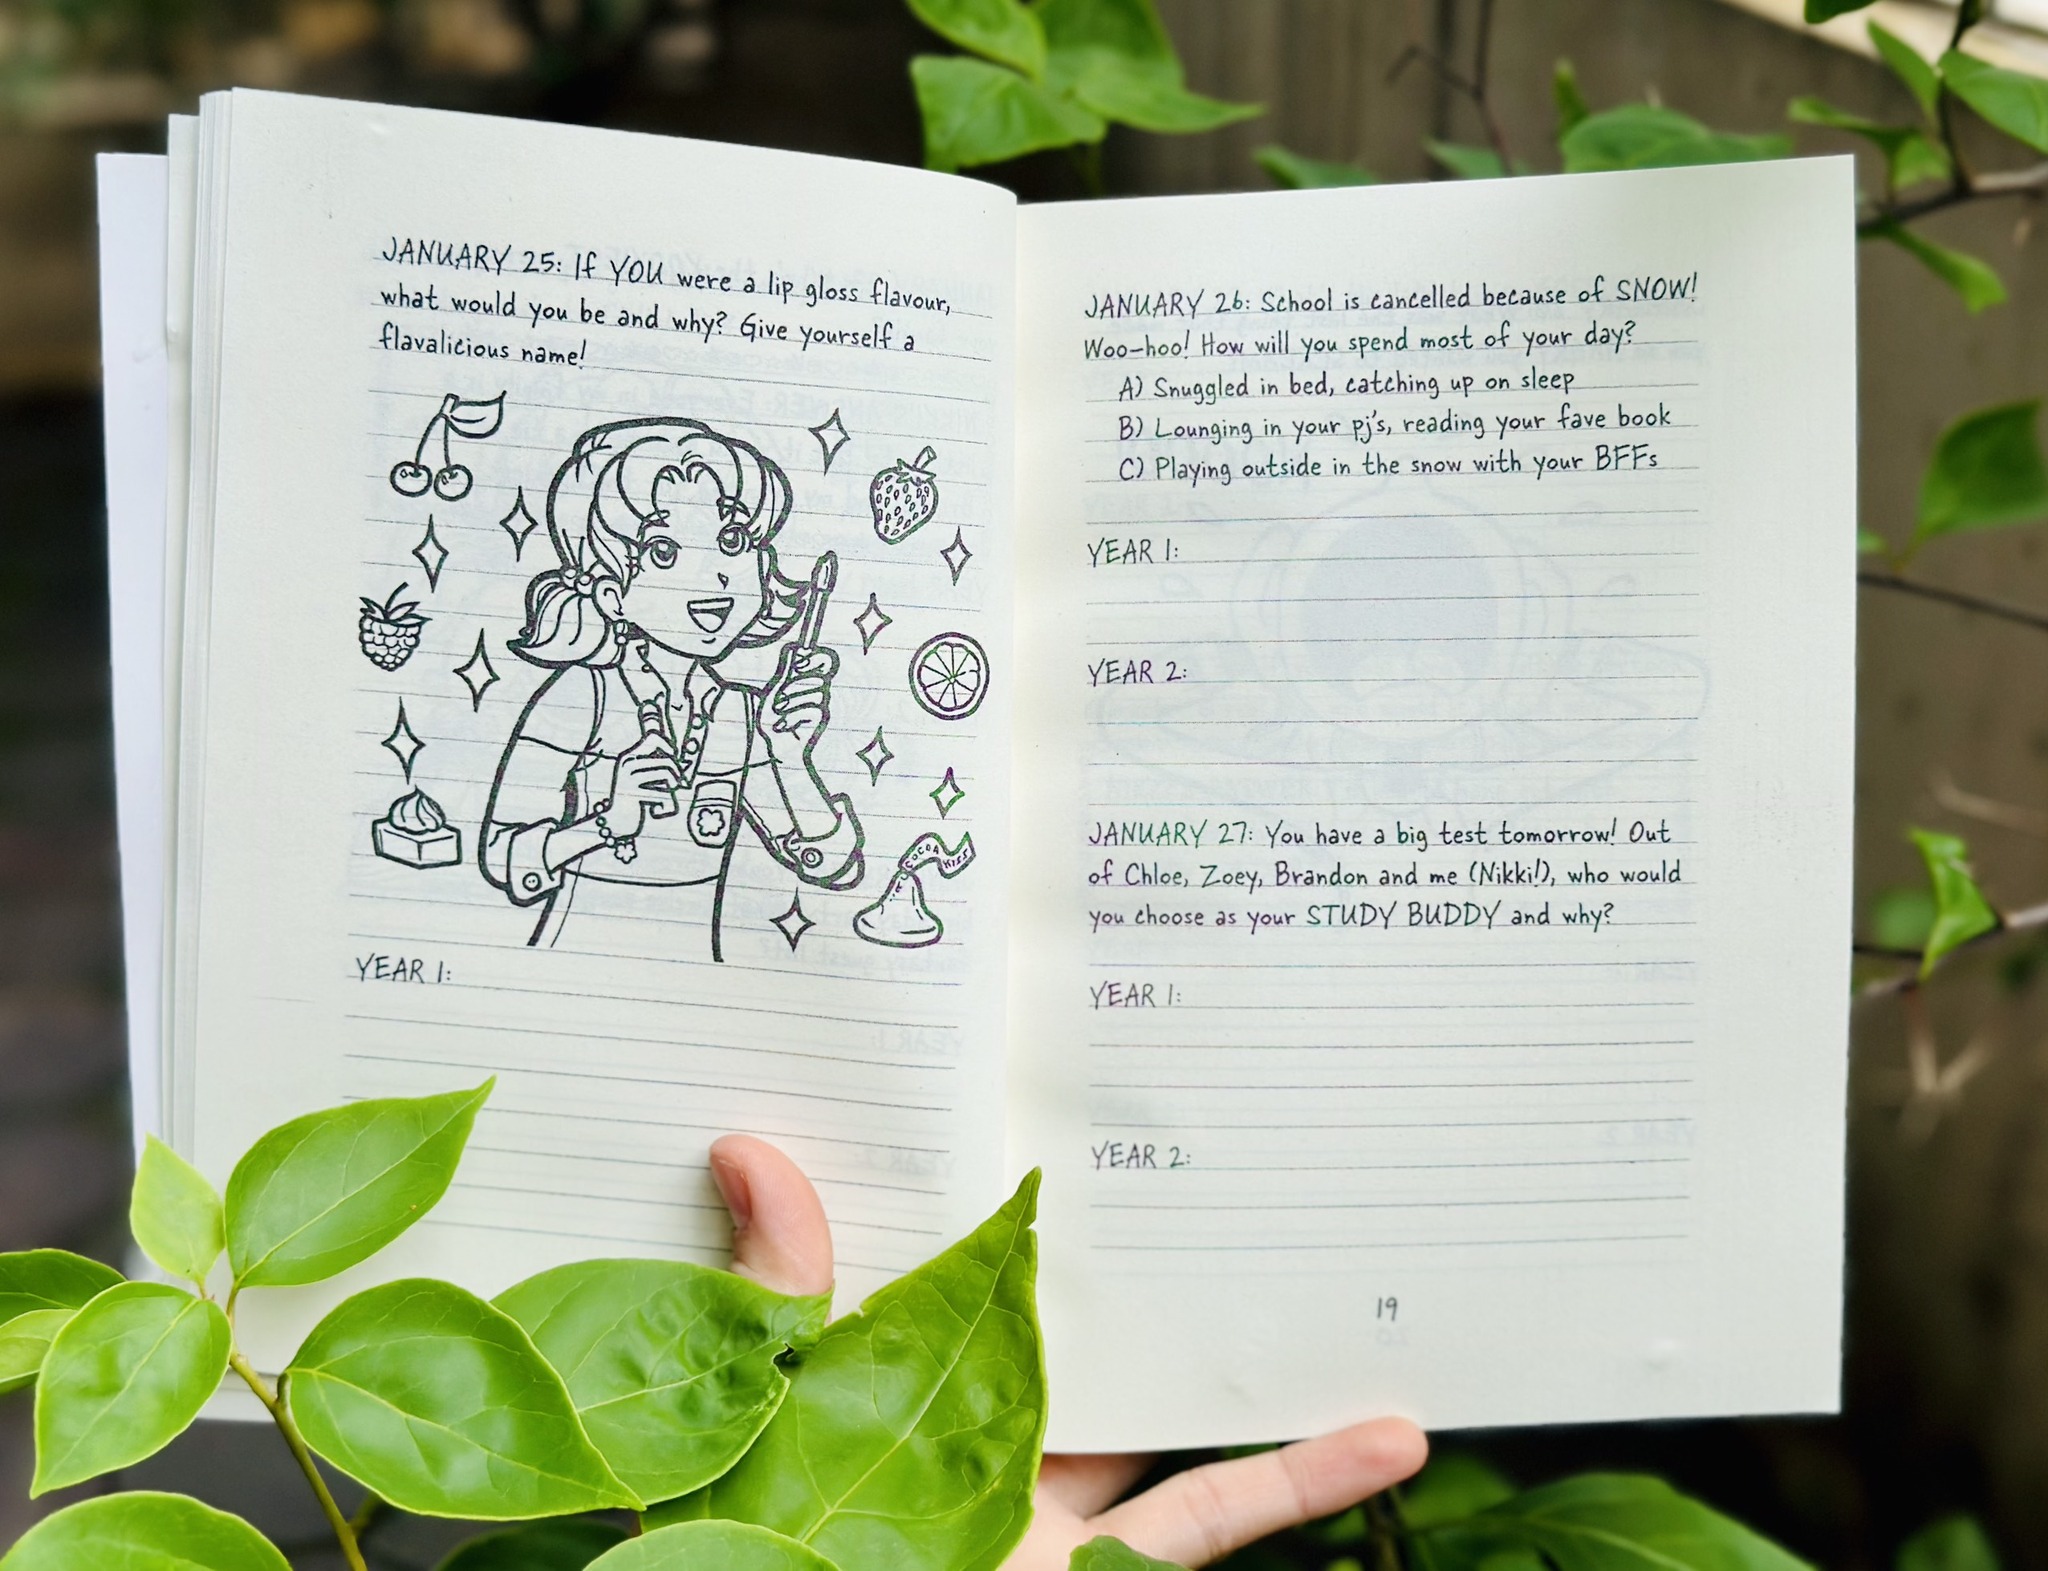 JANUARY 25: If YOU were a lip gloss flavour,
what would you be and why? Give yourself a
flavalicious name!
COCOA KISS
YEAR 1:
JANUARY 26: School is cancelled because of SNOW!
Woo-hoo! How will you spend most of your day?
A) Snuggled in bed, catching up on sleep
B) Lounging in your pj's, reading your fave book
C) Playing outside in the snow with your BFFs
YEAR 1:
YEAR 2:
JANUARY 27: You have a big test tomorrow! Out
of Chloe, Zoey, Brandon and me (Nikki!), who would
you choose as your STUDY BUDDY and why?
YEAR 1:
YEAR 2:
19